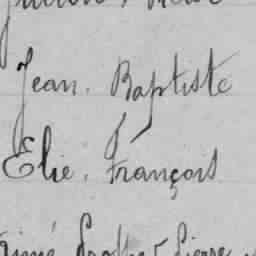 Jean. Baptiste
Elie. François
Aimé Pierre